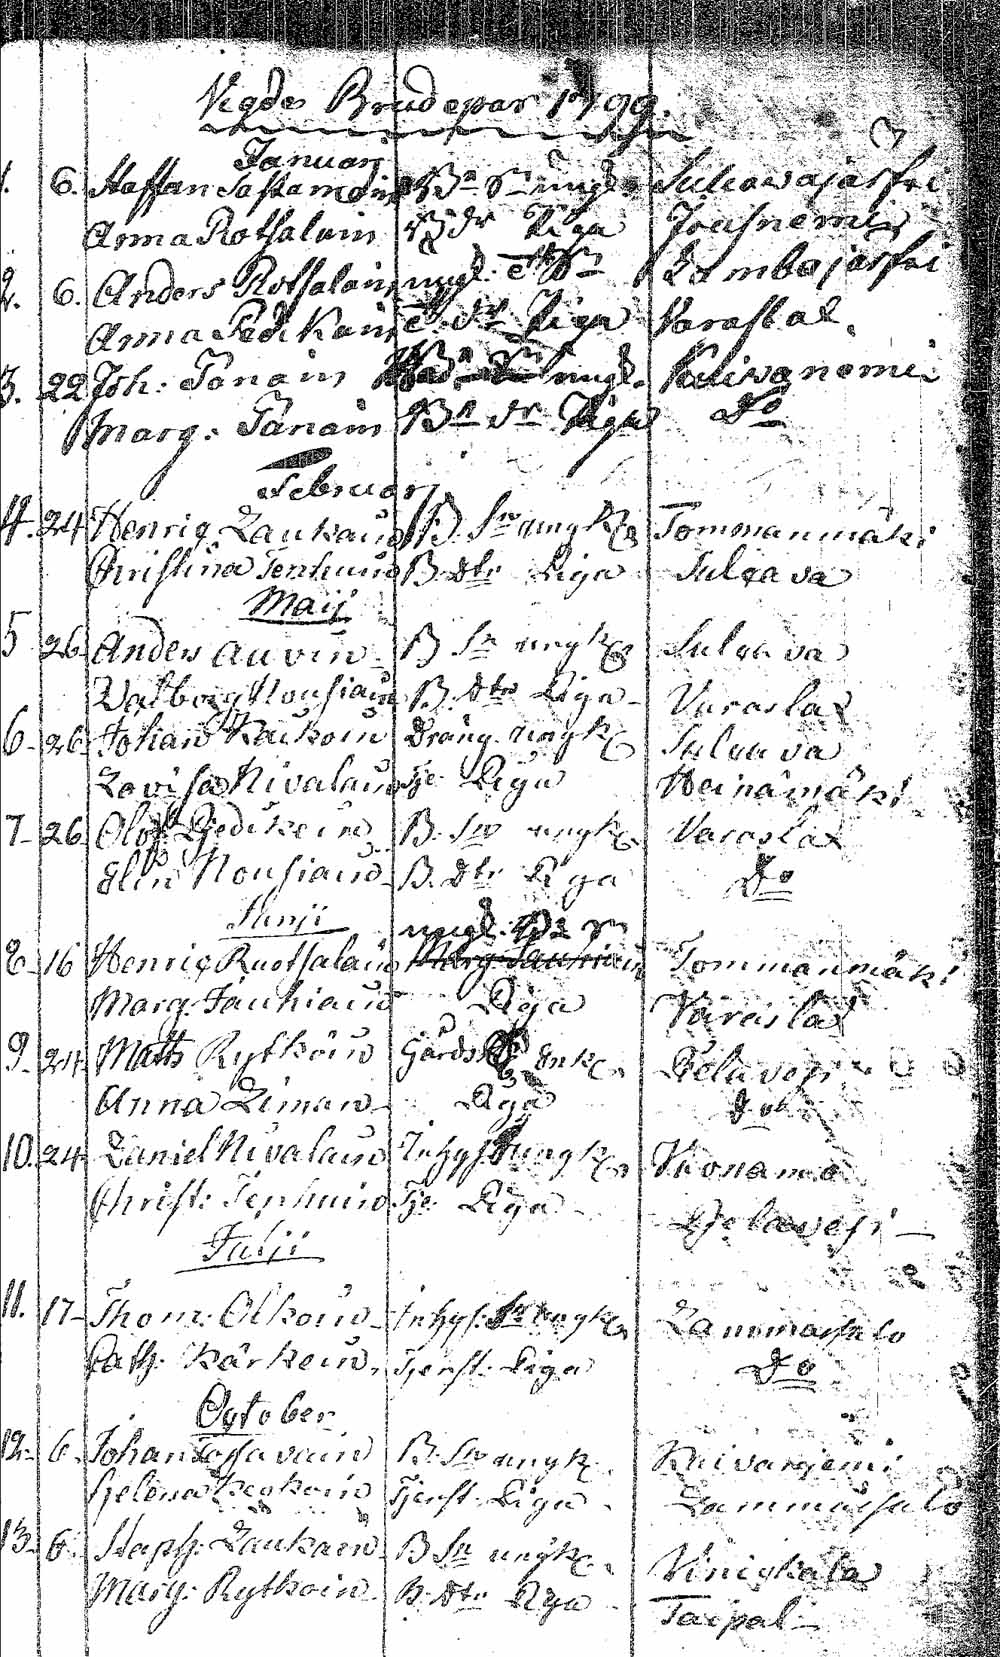 Vigde Brudepar 1799.
Januarj
1. 6. Staffan Sastamoin Bd Sn ungk. Suhowajärfvi
Anna Rotsalain Bde dr Piga Jousnemi
2. 6. Anders Rotsalain ungk. Sn Lambajärfvi
Anna Pedikain dr Piga Varaslax
3. 22 Joh: Tanain ungk. Kaivanemi
Marg: Tanain Bn dr Piga Do
Februarj
4. 24 Henric Laukain B. Sn ungk Tommanmäki
Christina Tenhuin B. dtr Piga Sulcava
Maij
5 26 Anders Auvin B Sn ungk Sulcava
Valborg Nousiain B. dtr Piga Varaslax
6 26 Johan Kaukoin Dräng ungk Sulcava
Lovisa Nivalain Tje. Piga Heinämäki
7 26 Olof Pjedikein B. Sn ungk Varaslax
Elin Nousiain B. Dtr Piga Do
Junij
ungk. Bd Sn
8 16 Henric Ruotsalain Tommanmäki
Marg: Jauhiain Piga Varaslax
9 24 Matts Rytkoin Gårds Enk. Pielavesi
Anna Liman Piga do
10. 24 Daniel Nivalain Inhys ungk Vuonamo
Christ: Tenhuin Tje. Piga Pjelavesi
Julij
11. 17 Thom: Olkoin Inhys. Sn ungk Lammassalo
Cath: Kärkein Tjenst. Piga Do
October
12. 6. Johan Tossavain B. Sn ungk. Kaivanjemi
Helena Keskoin Tjenst. Piga Lammassalo
13 6. Staph: Laukaen B Sn ungk. Vinickala
Marg: Rytkoin B. Dtr Piga Taipal